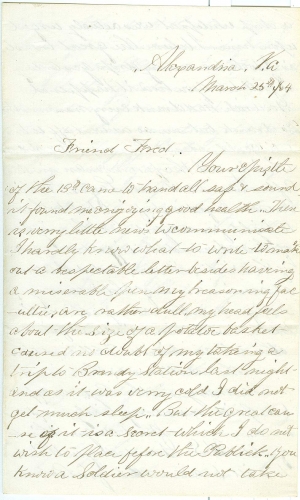 Alexandria, Va
March 25th /64
Friend Fred.
Your Epistle
of the 19th came to hand all safe & sound
it found me enjoying good health. There
is very little news to communicate
I hardly know what to write to make
out a respectable letter besides having
a miserable pen my reasoning fac-
ulties are rather dull my head feels
about the size of a potatoe basket
caused no doubt of my taking a
trip to Brandy Station last night
and as it was very cold I did not
get much sleep. But the great cau-
se of it is a secret which I do not
wish to place before the Publick. You
know a Soldier would not take